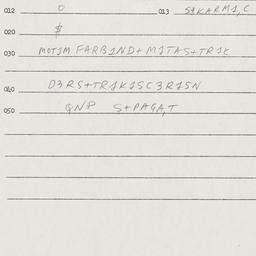 012 0 013 S1KARM1,C
020 $
030 MOT1M FARB1ND+ M1TAS+TR1K
040 D3RS+TR1K1SC3R15N
050 QNP S+PAGA,T